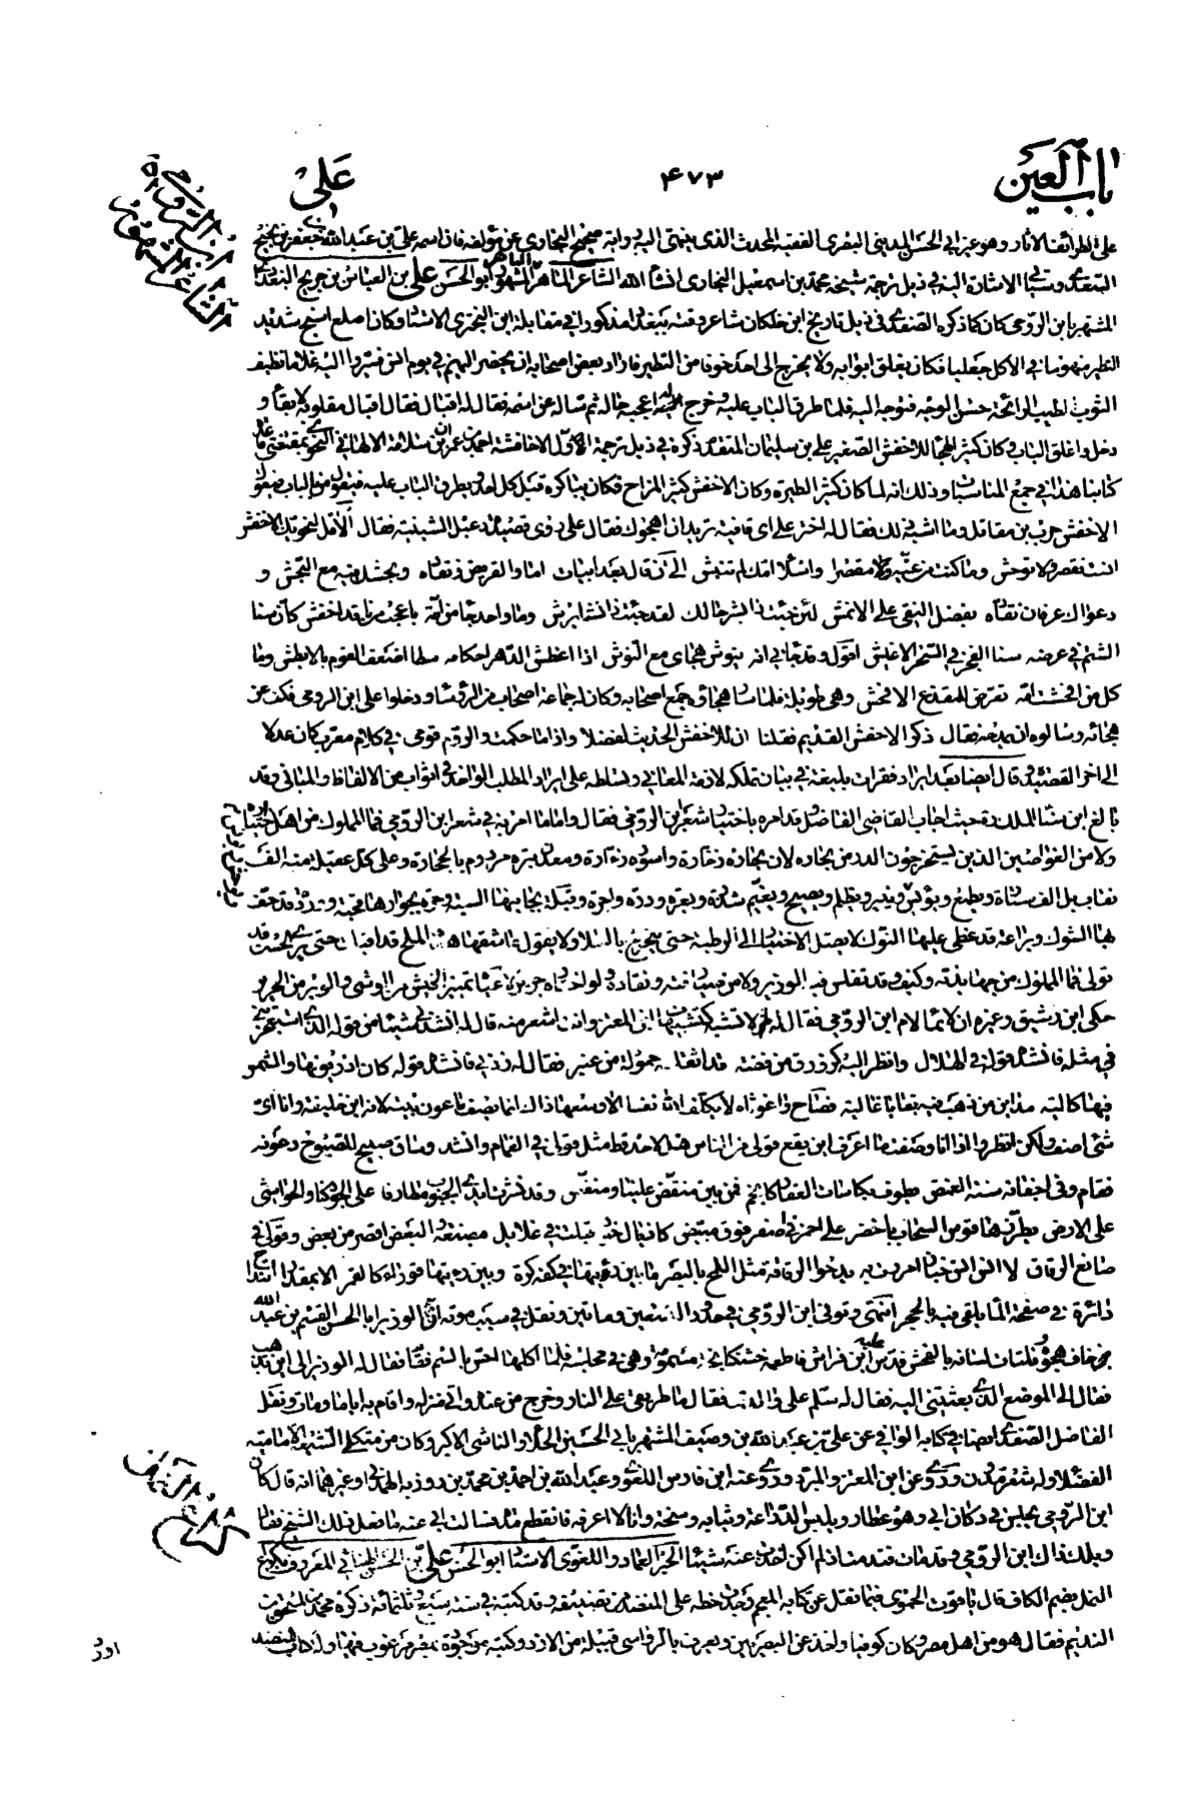 باب العين
۴۷۳
علي
ابن الرومي
الشاعر المشهور
على طرائف الآثار وهو غير أبي الحسن المديني البصري الفقيه المحدث الذي ينتمي اليه رواية صحيح البخاري عن مؤلفه فان اسمه علي بن عبد الله بن جعفر بن نجيح
السعدي وسيأتي الاشارة اليه في ذيل ترجمة شيخه محمد بن اسمعيل البخاري انشاء الله الشاعر الماهر المشهور ابو الحسن علي بن العباس بن جريج البغدادي
المشتهر بابن الرومي كان كما ذكره الصفدي في ذيل تاريخ ابن خلكان شاعر وقته ببغداد مذكورا في مقابلة ابن البحتري الاستاد وكان اصلع اسبح شديد
التطير منهوما في الاكل جعليا فكان يغلق ابوابه ولا يخرج الى احد خوفا من التطير فاراد بعض اصحابه ان يحضر اليهم في يوم انس فسيروا اليه غلاما نظيف
الثوب طيب الرائحة حسن الوجه فتوجه اليه فلما طرق الباب عليه وخرج اليه اعجبه حاله ثم ساله عن اسمه فقال له اقبال فقال اقبال مقلوبه لا بقاء و
دخل واغلق الباب وكان كثير الهجاء للاخفش الصغير علي بن سليمان المتقدم ذكره في ذيل ترجمة الاول الاخافشة احمد بن عمران بن سلامة الالهاني النحوي بمقتضى قاعدة
كتابنا هذا في جمع المناسبات وذلك انه لما كان كثير الطيرة وكان الاخفش كثير المزاح فكان يباكره قبل كل احد ويطرق الباب عليه فيقول من بالباب فيقول
الاخفش حرب بن مقاتل وما اشبه ذلك فقال له اختر على اي قافية تريد ان اهجوك فقال على روي قصيدة دعبل الشينية فقال الا قل لنحويك الاخفش
انست فقصر ولا توحش وما كنت من غيه مقصرا واشلاء امك لم تنبش الى ان قال بعد ابيات اما والقريض ونقاده وبحثك فيه مع النجش و
دعواك عرفان نقاده بفضل النقي على الانمش لئن جئت ذا بشر حالك لقد جئت ذا نسب ابرش وما واحد جاء من امه باعجب من ناقد اخفش كأن سنا
الشتم في عرضه سنا الفجر في السحر الاغبش اقول وقد جاءني انه ينوش هجاي مع النوش اذا اعطش الدهر احكامه سطا اضعف القوم بالابطش وما
كل من افحشت امه تعرض للمقذع الافحش وهي طويلة فلما سار هجاؤه جمع اصحابه وكان له جماعة اصحاب من الرؤساء ودخلوا على ابن الرومي فكف عن
هجائه وسالوه ان يمدحه فقال ذكر الاخفش القديم فقلنا ان للاخفش الحديث لفضلا واذا ما حكمت والروم قومي في كلام معرب كان عدلا
الى اخر القصيدة وقال ايضا بعد ايراد فقرات بليغة في بيان تملكه لازمة المعاني وتسلطه على ايراد المطلب الواحد في اثواب من الالفاظ والمباني وقد
بالغ ابن سناء الملك حيث اجاب القاضي الفاضل وقد امره باختيار شعر ابن الرومي فقال واما ما امر به في شعر ابن الرومي فما المملوك من اهل اختياره
ولا من الغواصين الذين يستخرجون الدر من بحاره لان بحاره زخارة واسوده زءارة ومعدن تبره مردوم بالحجارة وعلى كل عقيلة منه الف
نقاب بل الف ستارة يطمع ويؤيس وينير ويظلم ويصبح ويغيم
لها الشوك وبراعة قد غطى عليها النوك لا يصل الاختيار الى الرطبة حتى يجرح بالسلا ولا يقول
تولى فما المملوك من جهابذته وكيف وقد تفلس فيه الوزير ولا من صيارفته ونقاده ولو اختاره جرير لاعياه تمييز الخيش من الوشي والوبر من الحرير
حكى ابن رشيق وغيره ان لائما لام ابن الرومي فقال له لم لا تشبه كتشبيهات ابن المعتز وانت اشعر منه قال له انشدني شيئا من قوله الذي استعجزتني
في مثله فانشده قوله في الهلال وانظر اليه كزورق من فضة قد اثقلته حمولة من عنبر فقال له زدني فانشده قوله كأن آذريونها والشمس
فيها كالية مداهن من ذهب فيها بقايا غالية فصاح واغوثاه لا يكلف الله نفسا الا وسعها ذاك انما يصف ماعون بيته لانه ابن خليفة وانا اي
شيء اصف ولكن انظروا اذا انا وصفت ما اعرف اين يقع قولي من الناس هل لاحد قط مثل قولي في الغمام وانشد وساق صبيح للصبوح دعوته
فقام وفي اجفانه سنة الغمض يطوف بكاسات العقار كانجم فمن بين منقض علينا ومنفض وقد نشرت ايدي الجنوب مطارفا على الجو دكنا والحواشي
على الارض يطرزها قوس السحاب باخضر على احمر في اصفر فوق مبيض كاذيال خود اقبلت في غلائل مصبغة والبعض اقصر من بعض وقولي في
صانع الرقاق لا انس لا انس خبازا مررت به يدحو الرقاقة مثل اللمح بالبصر ما بين رؤيتها في كفه كرة وبين رؤيتها قوراء كالقمر الا بمقدار ما تنداح
دائرة في صفحة الماء يلقى فيه بالحجر انتهى وتوفي ابن الرومي في حدود التسعين وماتين ونقل في سبب موته ان الوزير ابا الحسن القسم بن عبيد الله
خاف هجوه وفلتات لسانه بالفحش فدس عليه ابن فراش فاطعمه خشكنانجة مسمومة وهي في مجلسه فلما اكلها احس بالسم فقام فقال له الوزير الى اين تذهب
فقال الى الموضع الذي بعثتني اليه فقال له سلم على والدي فقال ما طريقي على النار وخرج من عنده واتى منزله واقام به اياما ومات ونقل
الفاضل الصفدي ايضا في كتابه الوافي عن علي بن عبد الله بن وصيف المشتهر بابي الحسين الحلاء والناشي الاكبر وكان من متكلمي الشيعة الامامية
الفضلاء وله شعر مدون وروى عن ابن المعتز والمبرد وروى عنه ابن فارس اللغوي وعبد الله بن احمد بن محمد بن روزبه الهمداني وغيرهما انه قال كان
ابن الرومي يجلس في دكان ابي وهو عطار ويلبس الدراعة وثيابه وسخة وانا لا اعرفه فانقطع مدة فسالت ابي عنه ما فعل ذلك الشيخ فقال
ويلك ذاك ابن الرومي وقد مات فندمت اذ لم اكن اخذت عنه شيئا الحبر العماد واللغوي الاستاد ابو الحسن علي بن الحسن الهنائي المعروف بكراع
النمل بضم الكاف قال ياقوت الحموي فيما نقل عن كتابه المعجم وجدت خطه على المنضد من تصنيفه وقد كتبه في سنة سبع وثلثمائة ذكره محمد بن اسحق
النديم فقال هو من اهل مصر وكان كوفيا واخذ عن البصريين ويعرف بالرؤاسي قبيلة من الازد وكتبه موجودة بمصر مرغوب فيها وله كتاب المنضد
اورد